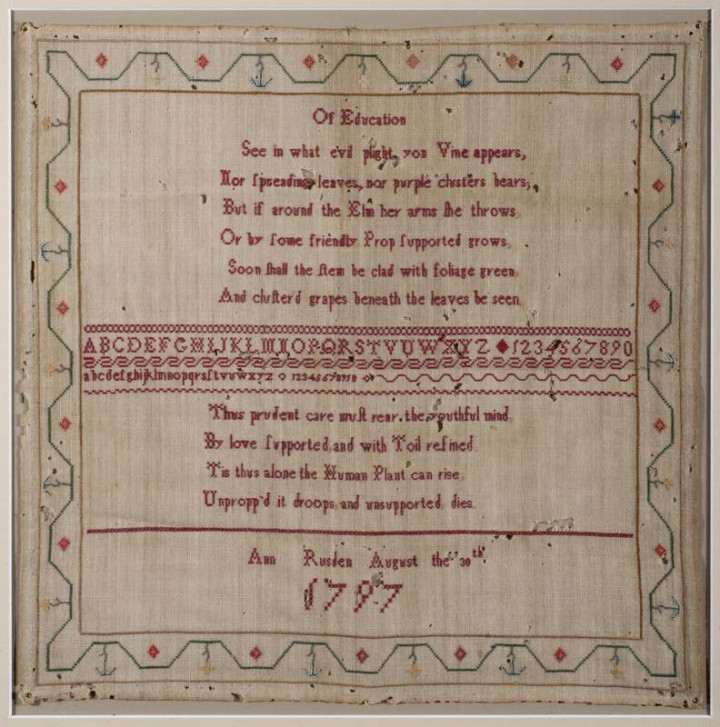 Of Education
See in what evil plight, yon Vine appears,
Nor ſpreading leaves, nor purple cluſters bears;
But if around the Elm her arms ſhe throws,
Or by ſome friendly Prop ſupported grows,
Soon ſhall the ſtem be clad with foliage green,
And cluſter'd grapes beneath the leaves be seen.
ABCDEFGHIJKLMNOPQRSTVUWXYZ 1234567890
abcdefghijklmnopqrsſtvuwxyz 1234567890
Thus prudent care muſt rear, the youthful mind,
By love ſupported, and with Toil refined
'Tis thus alone the Human Plant can rise,
Unpropp'd it droops and unsupported dies.
Ann Rusden August the 30th
1797